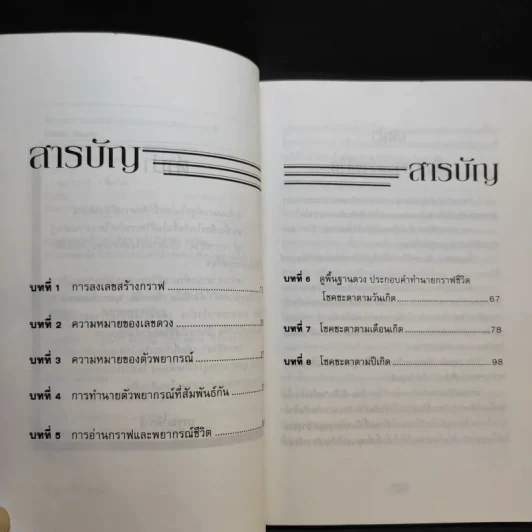 สารบัญ
บทที่ 1 การลงเลขสร้างกราฟ
บทที่ 2 ความหมายของเลขดวง
บทที่ 3 ความหมายของตัวพยากรณ์
บทที่ 4 การทำนายตัวพยากรณ์ที่สัมพันธ์กัน
บทที่ 5 การอ่านกราฟและพยากรณ์ชีวิต
สารบัญ
บทที่ 6 ดูพื้นฐานดวง ประกอบคำทำนายกราฟชีวิต
โชคชะตาตามวันเกิด 67
บทที่ 7 โชคชะตาตามเดือนเกิด 78
บทที่ 8 โชคชะตาตามปีเกิด 98